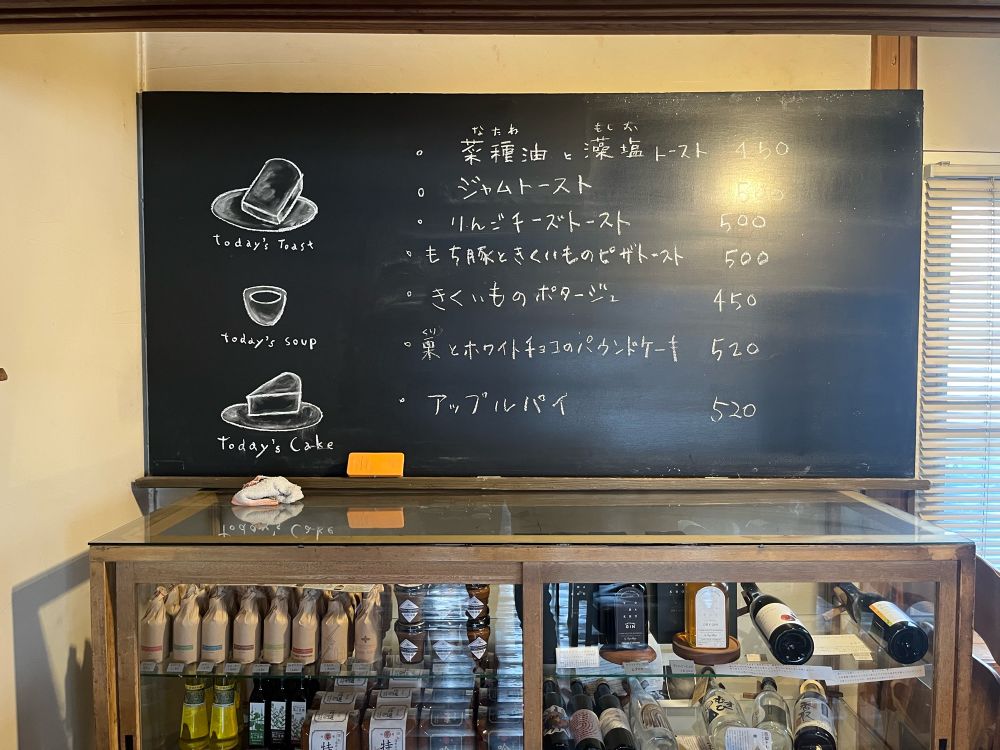 なたね もしお
菜種油と藻塩トースト 450
ジャムトースト 500
りんごチーズトースト 500
today's Toast
もち豚ときくいものピザトースト 500
きくいものポタージュ 450
today's soup
くり
栗とホワイトチョコのパウンドケーキ 520
アップルパイ 520
Today's Cake
GIN